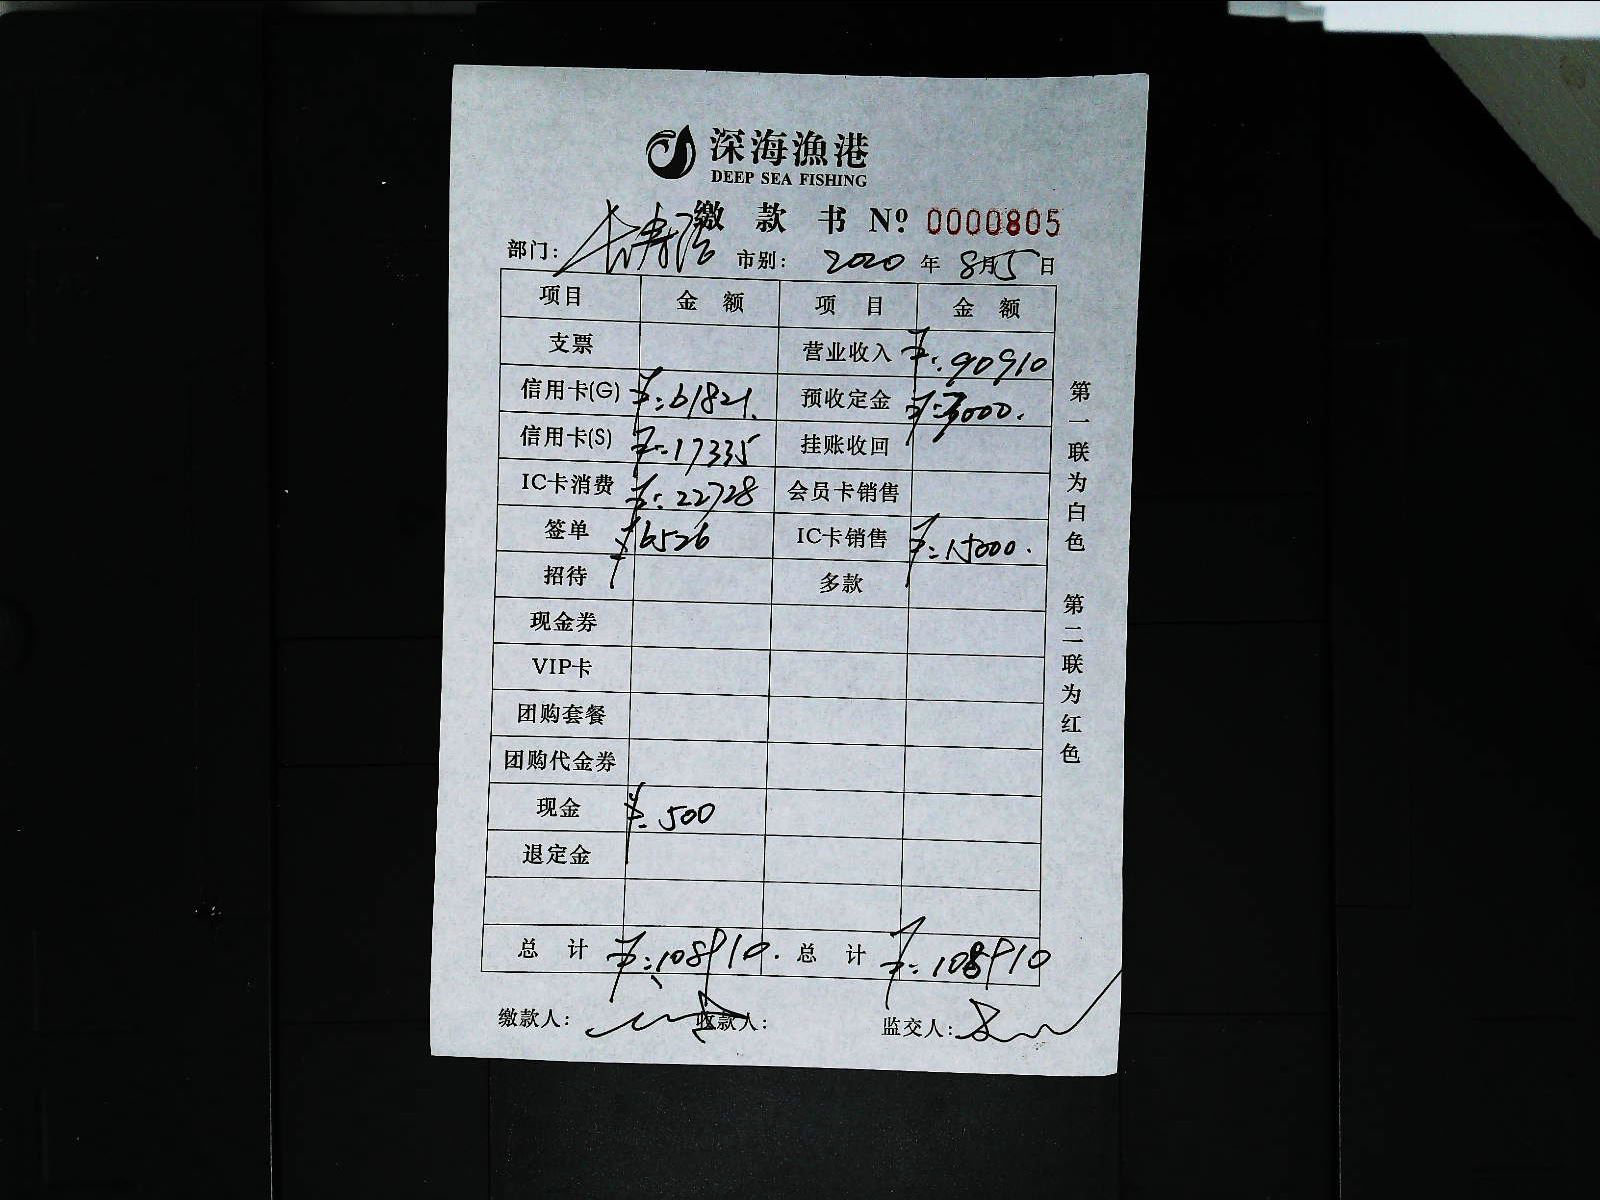 深海漁港
DEEP SEA FISHING
缴款书 Nº 0000805
部门: 长寿路 市别: 2020 年 8月5日
项目 金额 项目 金额
支票 营业收入 ¥:90910
信用卡(G) ¥:61821. 预收定金 ¥:3000.
信用卡(S) ¥:17335 挂账收回
IC卡消费 ¥:22728 会员卡销售
签单 ¥6526 IC卡销售 ¥:15000.
招待 多款
现金券
VIP卡
团购套餐
团购代金券
现金 ¥:500
退定金
总计 ¥:108910. 总计 ¥:108910
缴款人: 收款人: 监交人:
第一联为白色 第二联为红色